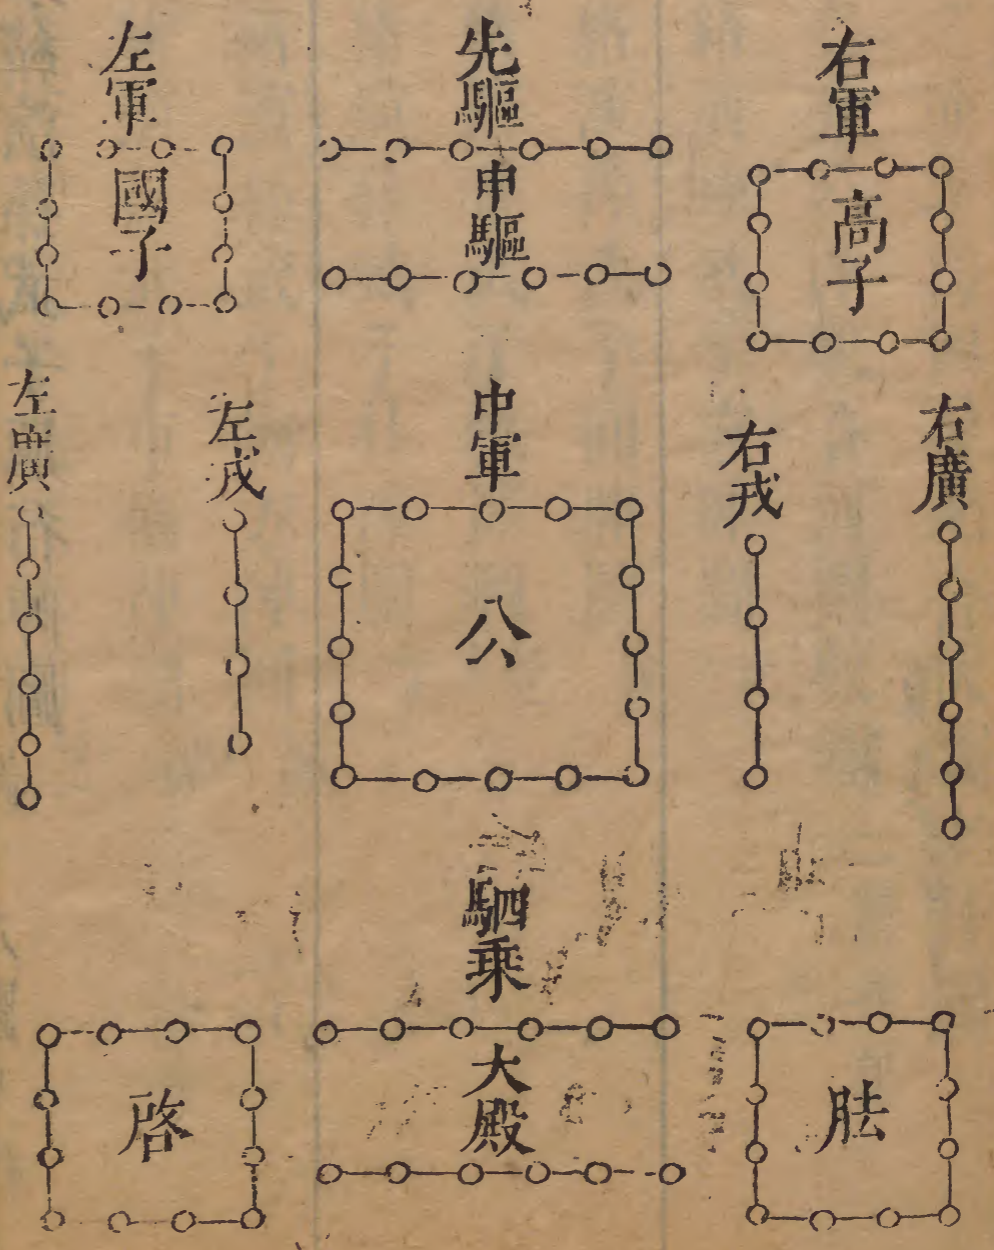 右軍
高子
右廣
右戎
胠
先驅
申驅
中軍
公
駟乘
大殿
左軍
國子
左戎
左廣
啓